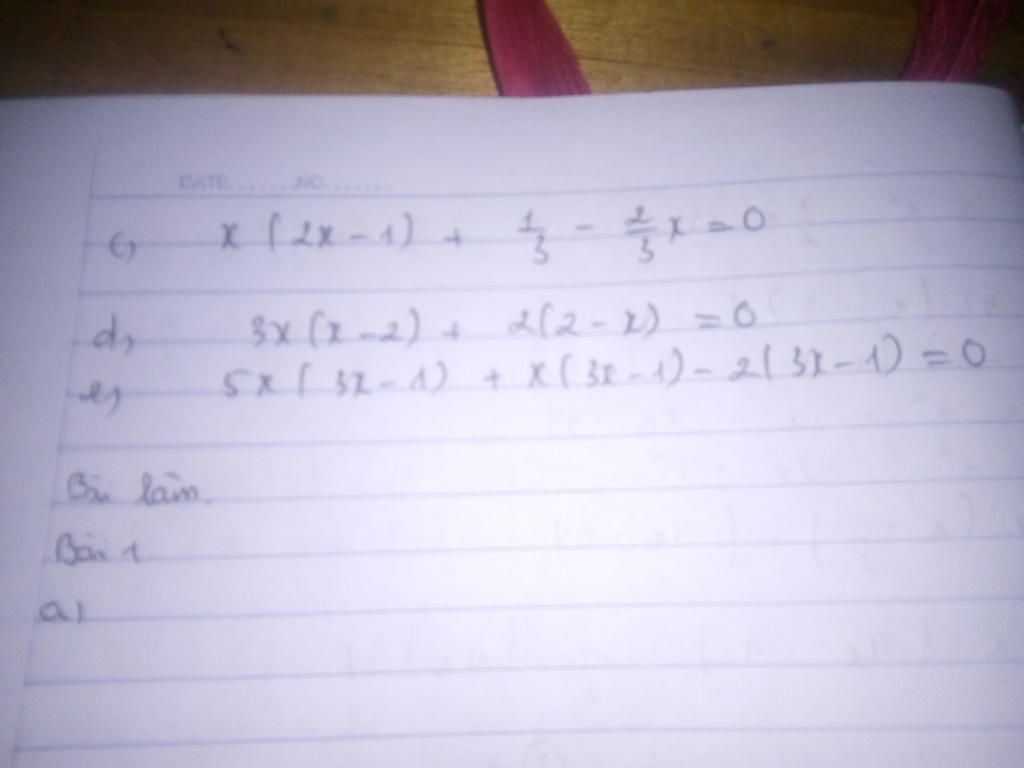 DATE.......NO.......
c, x(2x-1) + 1/3 - 2/3 x = 0
d, 3x(x-2) + 2(2-x) = 0
e, 5x(3x-1) + x(3x-1) - 2(3x-1) = 0
Bài làm.
Bài 1
a)